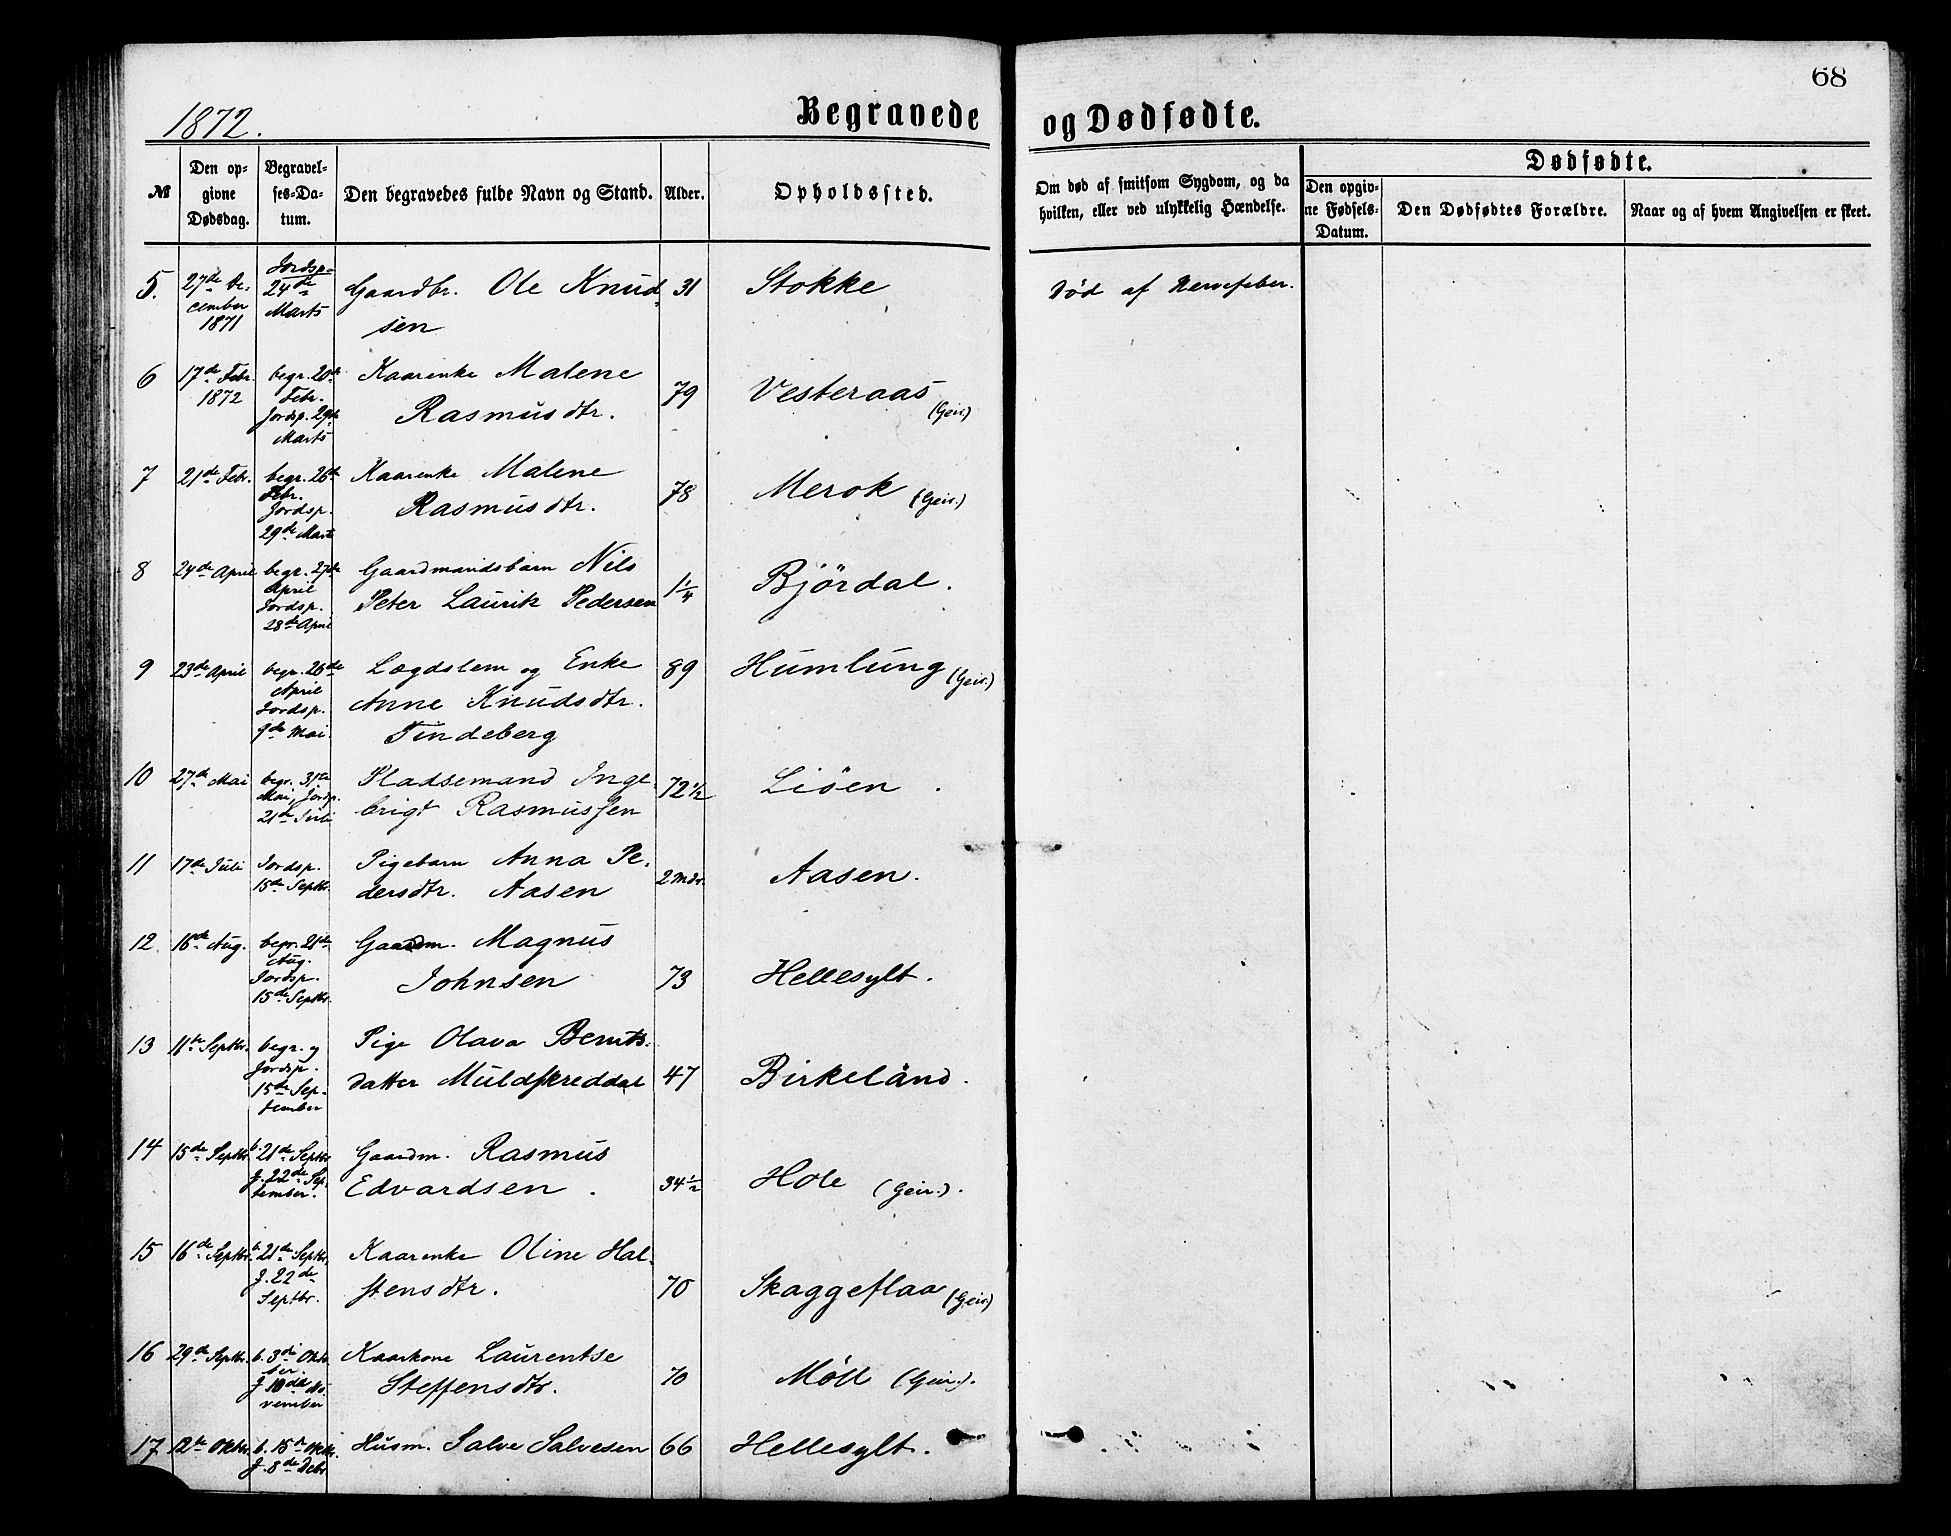 68
1872.
Begravede og Dødfødte.
№
Den op-
givne
Dødsdag.
Begravel-
ses-Da-
tum.
Den begravedes fulde Navn og Stand.
Alder.
Opholdssted.
Om død af smitsom Sygdom, og da
hvilken, eller ved ulykkelig Hændelse.
Dødfødte.
Den opgiv-
ne Fødsels-
Datum.
Den Dødfødtes Forældre.
Naar og af hvem Angivelsen er skeet.
5. 27de De-
cember
1871
Jordsp-
24de
Marts
Gaardbr. Ole Knud-
sen
31 Stokke
Død af Nervefeber.
6 17de Febr.
1872
begr. 20de
Febr.
Jordsp. 29de
Marts
Kaarenke Malene
Rasmusdtr.
79 Vesteraas
(Geir.)
7 21de Febr.
begr. 26de
Febr.
Jordsp.
29de Marts
Kaarenke Malene
Rasmusdtr.
78 Merok (Geir.)
8 24de April
begr. 27de
April
Jordsp.
28de April
Gaardmandsbarn Nils
Peter Laurik Pedersen
1 1/4 Björdal.
9 23de April
begr. 26de
April
Jordsp.
9de Mai.
Lægdslem og Enke
Anne Knudsdtr.
Tindeberg
89 Humlung (Geir.)
10 27de Mai
begr. 31te
Mai, Jordsp.
21de Juli
Pladsemand Inge-
brigt Rasmussen
72 1/2 Liöen.
11 17de Juli
Jordsp.
15de Septbr.
Pigebarn Anna Pe-
dersdtr. Aasen
2 Mdr. Aasen.
12. 16de Aug.
begr. 21de
Aug.
Jordsp.
15de Septbr.
Gaardm. Magnus
Johnsen
73 Hellesylt.
13 11te Septbr.
begr. og
Jordsp.
15de Sep-
tember
Pige Olava Bernts-
datter Muldskreddal
47 Birkeland.
14 15de Septbr.
b. 21de Septbr.
J. 22de Sep-
tember.
Gaardm. Rasmus
Edvardsen.
34 1/2 Hole (Geir.).
15 16de Septbr.
b. 21de Septbr.
J. 22de
Septbr.
Kaarenke Oline Hal-
stensdtr.
70 Skaggeflaa (Geir.)
16 29de Septbr.
b. 3de Okto-
ber.
J 10de No-
vember
Kaarkone Laurentse
Steffensdtr.
70 Möll (Geir.).
17 12te Oktbr.
b. 15de Oktbr.
J. 8de Debr.
Husm. Salve Salvesen
66 Hellesylt.